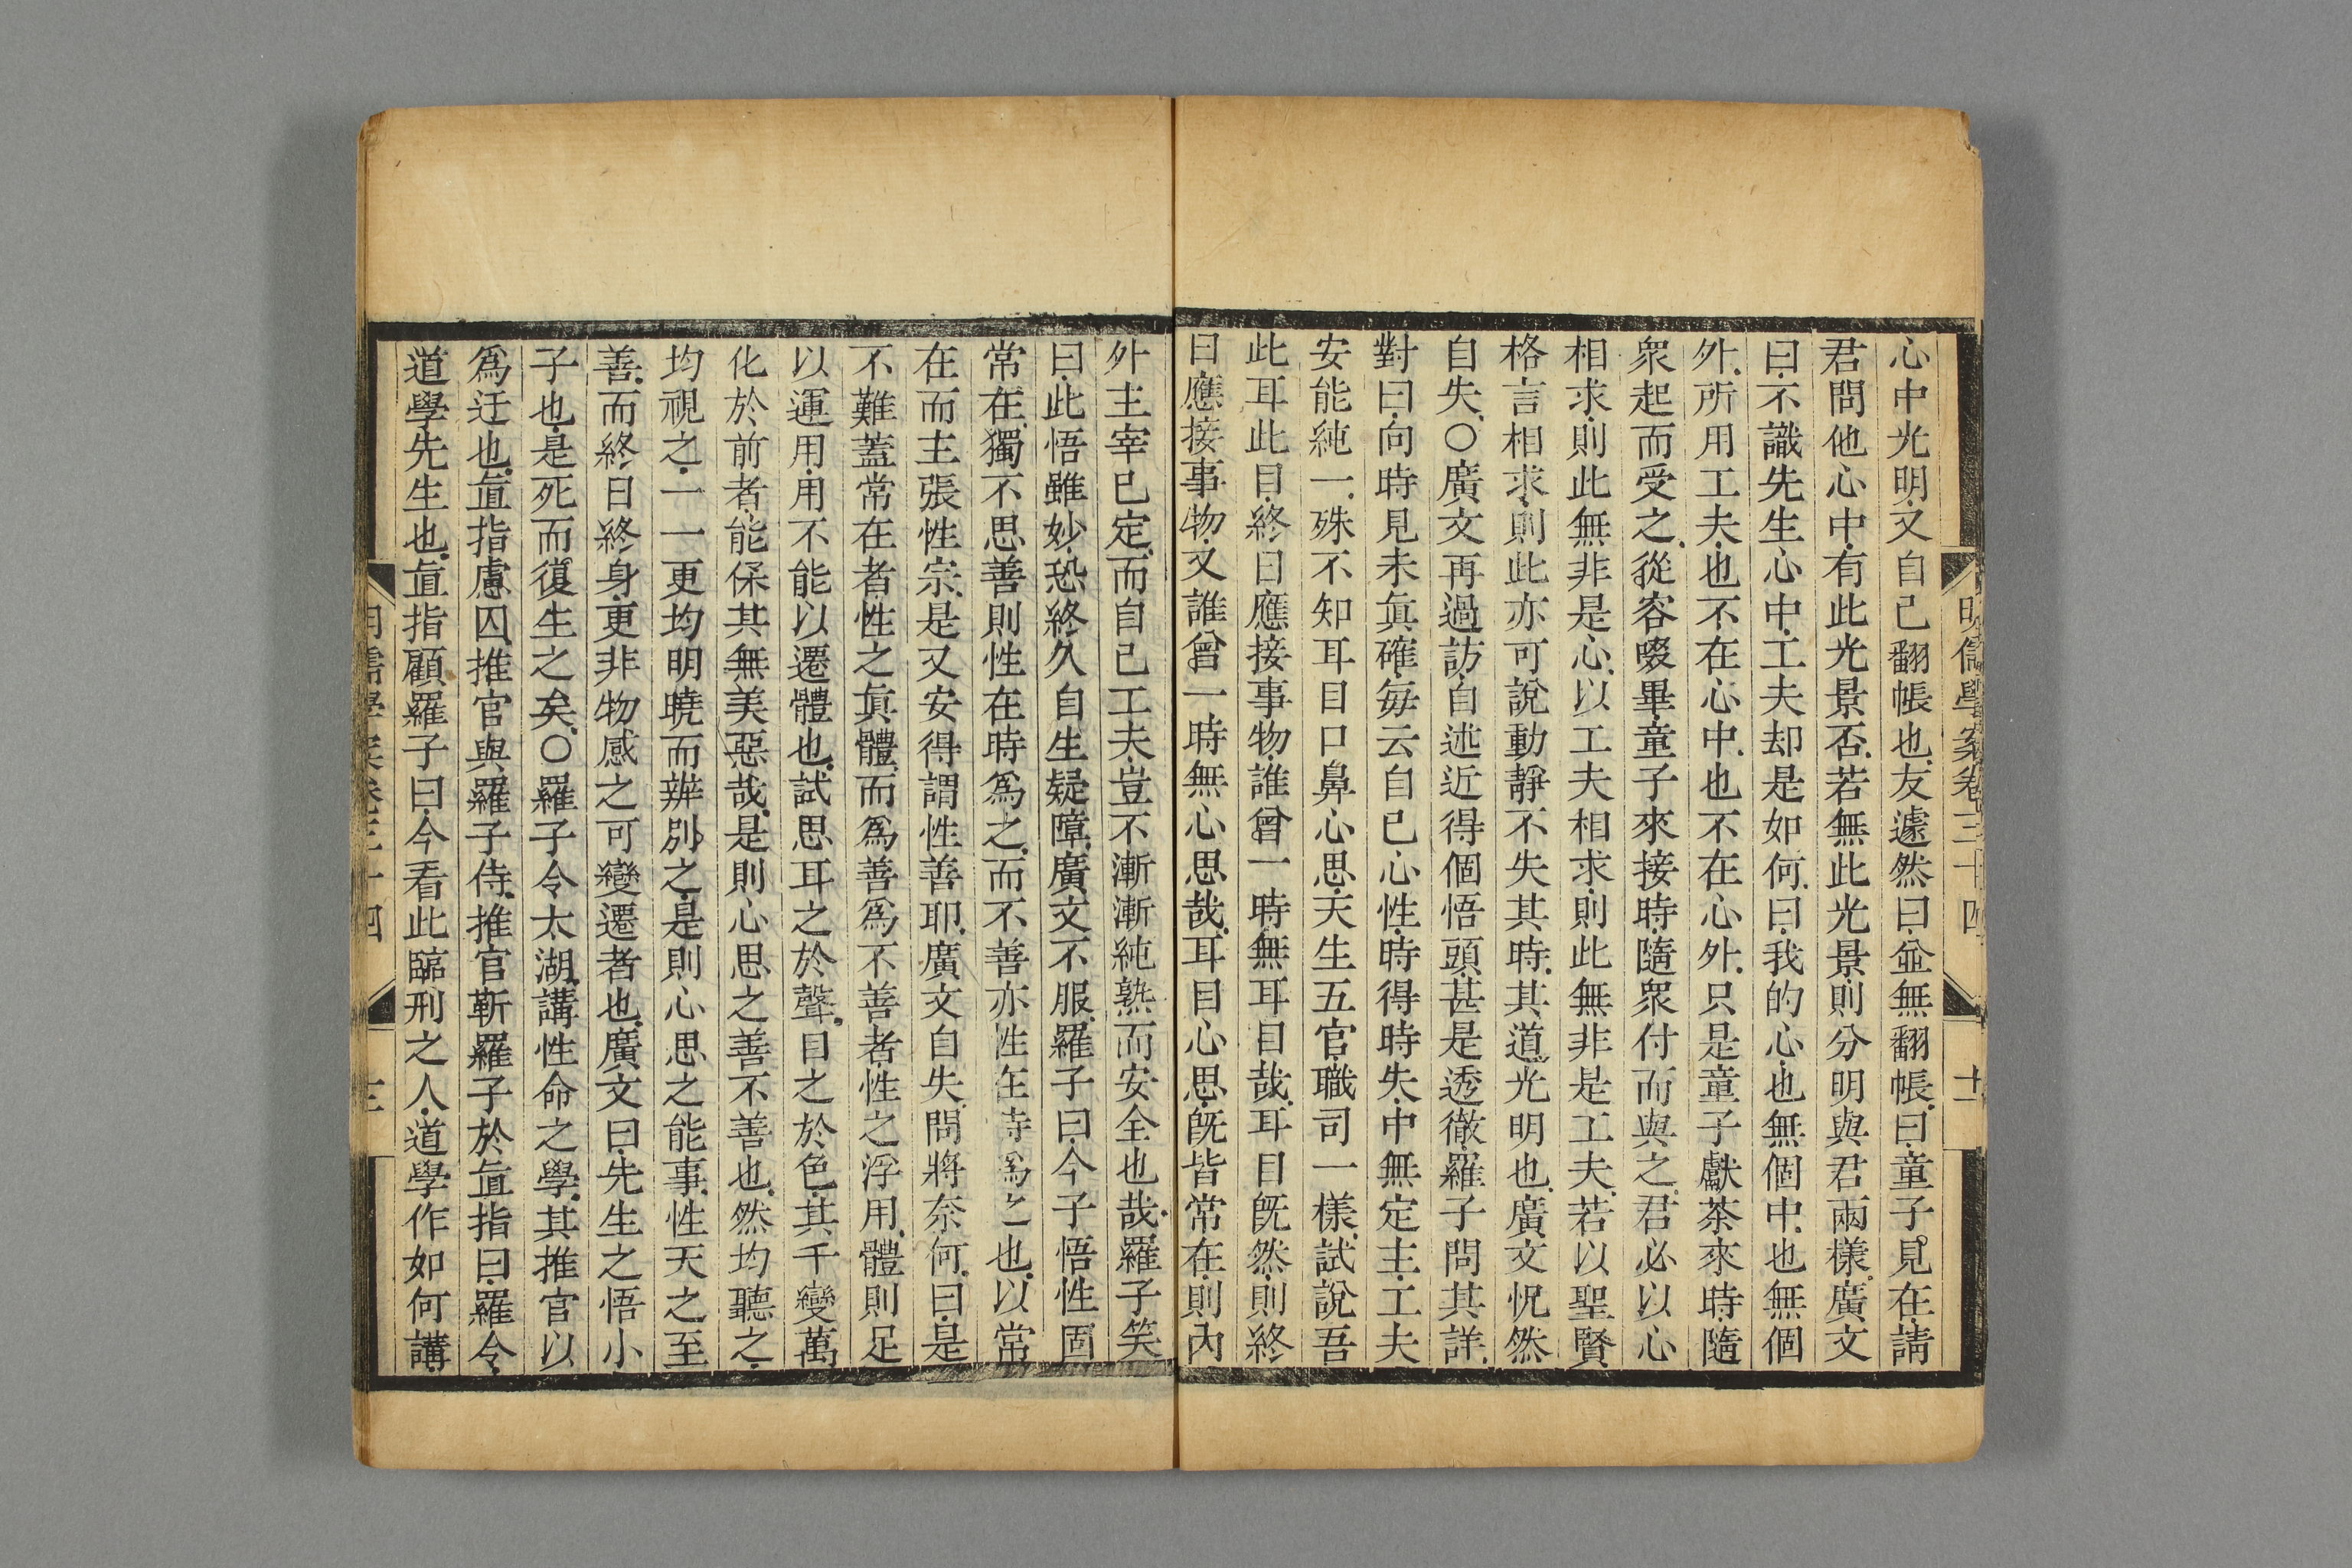 明儒學案卷三十四
十
心中光明又自己翻帳也友遽然曰並無翻帳曰童子見在請
君問他心中有此光景否若無此光景則分明與君兩樣廣文
曰不識先生心中工夫却是如何曰我的心也無個中也無個
外所用工夫也不在心中也不在心外只是童子獻茶來時隨
衆起而受之從容啜畢童子來接時隨衆付而與之君必以心
相求則此無非是心以工夫相求則此無非是工夫若以聖賢
格言相求則此亦可說動靜不失其時其道光明也廣文怳然
自失○廣文再過訪自述近得個悟頭甚是透徹羅子問其詳
對曰向時見未眞確每云自己心性時得時失中無定主工夫
安能純一殊不知耳目口鼻心思天生五官職司一樣試說吾
此耳此目終日應接事物誰曾一時無耳目哉耳目旣然則終
日應接事物又誰曾一時無心思哉耳目心思旣皆常在則內
外主宰已定而自己工夫豈不漸漸純熟而安全也哉羅子笑
曰此悟雖妙恐終久自生疑障廣文不服羅子曰今子悟性固
常在獨不思善則性在時爲之而不善亦性在時爲之也以常
在而主張性宗是又安得謂性善耶廣文自失問將奈何曰是
不難蓋常在者性之眞體而爲善爲不善者性之浮用體則足
以運用用不能以遷體也試思耳之於聲目之於色其千變萬
化於前者能保其無美惡哉是則心思之善不善也然均聽之
均視之一一更均明曉而辨別之是則心思之能事性天之至
善而終日終身更非物感之可變遷者也廣文曰先生之悟小
子也是死而復生之矣○羅子令太湖講性命之學其推官以
爲迂也直指慮囚推官與羅子侍推官靳羅子於直指曰羅令
道學先生也直指顧羅子曰今看此臨刑之人道學作如何講